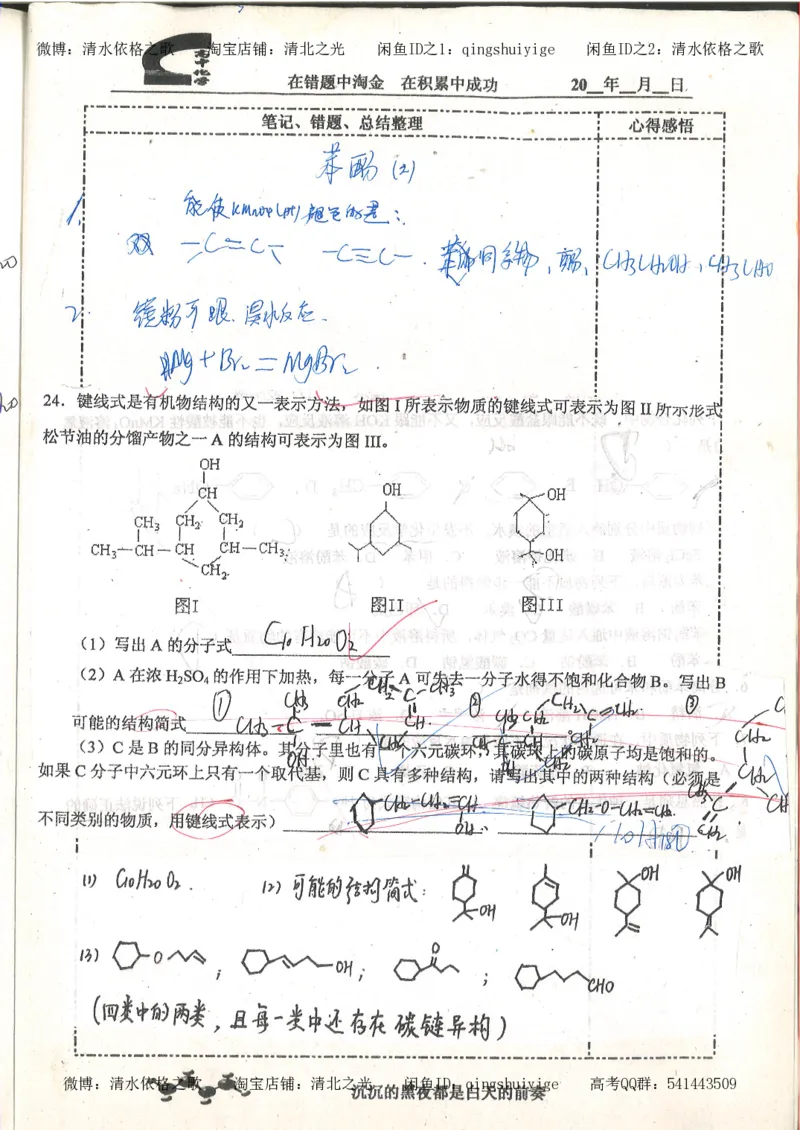 微博：清水依格之歌 淘宝店铺：清北之光 闲鱼ID之1：qingshuiyige 闲鱼ID之2：清水依格之歌
高中化学
在错题中淘金 在积累中成功 20__年__月__日
笔记、错题、总结整理 心得感悟
苯酚(2)
1. 能使KMnO4(H+)褪色的是：
-C=C- -C≡C- . 苯的同系物、酚、CH3CH2OH、CH3CHO
2. 镁粉
Mg+Br2=MgBr2
24．键线式是有机物结构的又一表示方法，如图 I 所表示物质的键线式可表示为图 II 所示形式
松节油的分馏产物之一 A 的结构可表示为图 III。
OH
CH OH OH
CH3 CH2 CH2
CH3—CH—CH CH—CH3 OH
CH2
图I 图II 图III
（1）写出 A 的分子式 C10H20O2
（2）A 在浓 H2SO4 的作用下加热，每一分子 A 可失去一分子水得不饱和化合物 B。写出 B
可能的结构简式
（3）C 是 B 的同分异构体。其分子里也有一个六元碳环，其碳环上的碳原子均是饱和的。
如果 C 分子中六元环上只有一个取代基，则 C 具有多种结构，请写出其中的两种结构（必须是
不同类别的物质，用键线式表示）
C10H18O
(1) C10H20O2. (2) 可能的结构简式： OH OH OH OH
(3) O ； OH ； O ； CHO
(四类中的两类，且每一类中还存在碳链异构)
微博：清水依格之歌 淘宝店铺：清北之光 闲鱼ID：qingshuiyige 高考QQ群：541443509
沉沉的黑夜都是白天的前奏